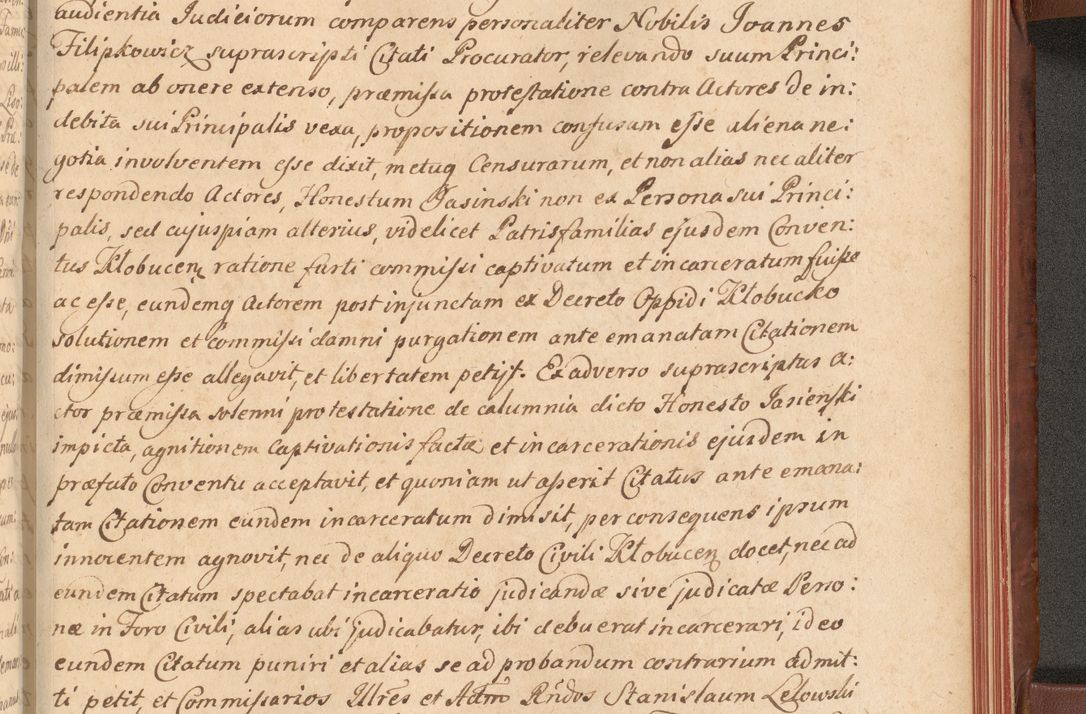 audientia Judiciorum comparens personaliter Nobilis Joannes
Filipkowicz suprascripti Citati Procurator, relevando suum Princi:
palem ab onere extenso, præmissa protestatione contra Actores de in:
debita sui Principalis vexa, propositionem confusam esse aliena ne:
gotia involventem esse dixit, metuq Censurarum, et non alias nec aliter
respondendo Actores, Honestum Jasinski non ex Persona sui Princi:
palis, sed cujuspiam alterius, videlicet Patrisfamilias ejusdem Conven:
tus Kłobucen ratione furti commissi captivatum et incarceratum fuisse
ac esse, eundemq Actorem post injunctam ex Decreto Oppidi Kłobucko
solutionem et commissi damni purgationem ante emanatam Citationem
dimissum esse allegavit, et libertatem petijt. Ex adverso suprascriptus A:
ctor præmissa solenni protestatione de calumnia dicto Honesto Jasienski
impicta, agnitionem Captivationis factæ et incarcerationis ejusdem in
præfato Conventu acceptavit, et quoniam ut asserit Citatus ante emana:
tam Citationem eundem incarceratum dimisit, per consequens ipsum
innocentem agnovit, nec de aliquo Decreto Civili Kłobucen docet, nec ad
eundem Citatum spectabat incarceratio judicandæ sive judicatæ Perso:
næ in Foro Civili, alias ubi judicabatur, ibi debuerat incarcerari, ideo
eundem Citatum puniri et alias se ad probandum contrarium admit:
ti petit, et Commissarios Illres et Adm Rndos Stanislaum Lelowski